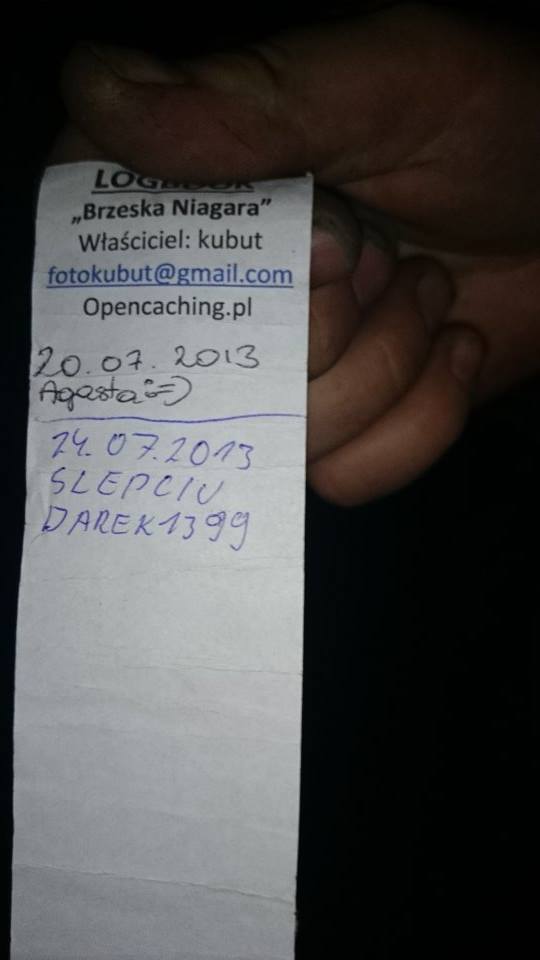 LOGBOOK
„Brzeska Niagara”
Właściciel: kubut
fotokubut@gmail.com
Opencaching.pl
20.07.2013
Agasta =)
24.07.2013
SLEPCIU
DAREK1399